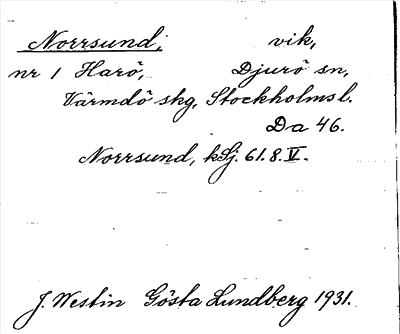 Norrsund, vik,
nr 1 Harö, Djurö sn,
Värmdö skg, Stockholms l.
Da 46.
Norrsund, kSj. 61.8. V.
J. Westin Gösta Lundberg 1931.